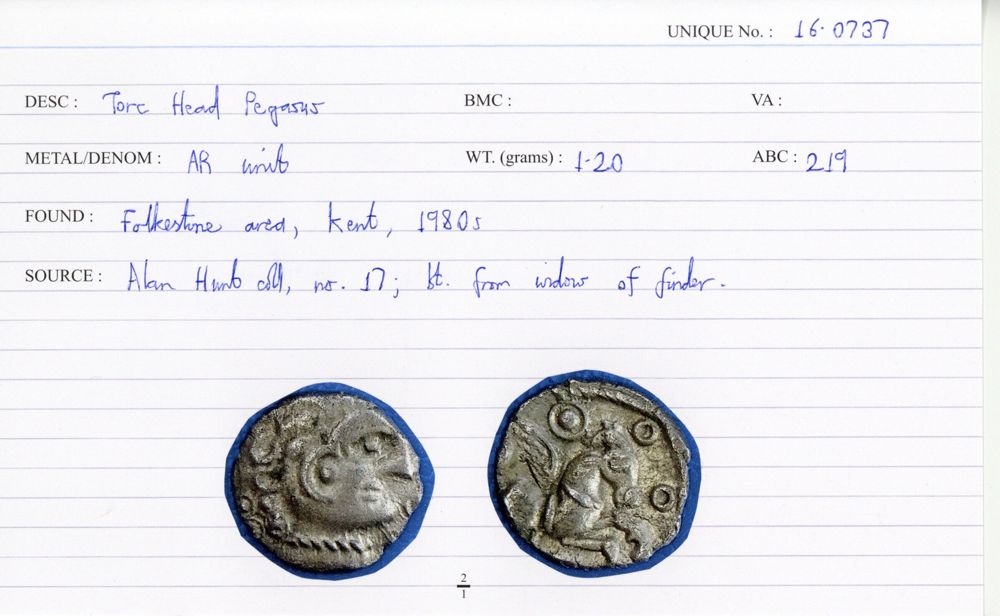 UNIQUE No. : 16.0737
DESC : Torc Head Pegasus BMC : VA :
METAL/DENOM : AR unit WT. (grams) : 1.20 ABC : 219
FOUND : Folkestone area, Kent, 1980s
SOURCE : Alan Hunt coll, no. 17; bt. from widow of finder.
2
1